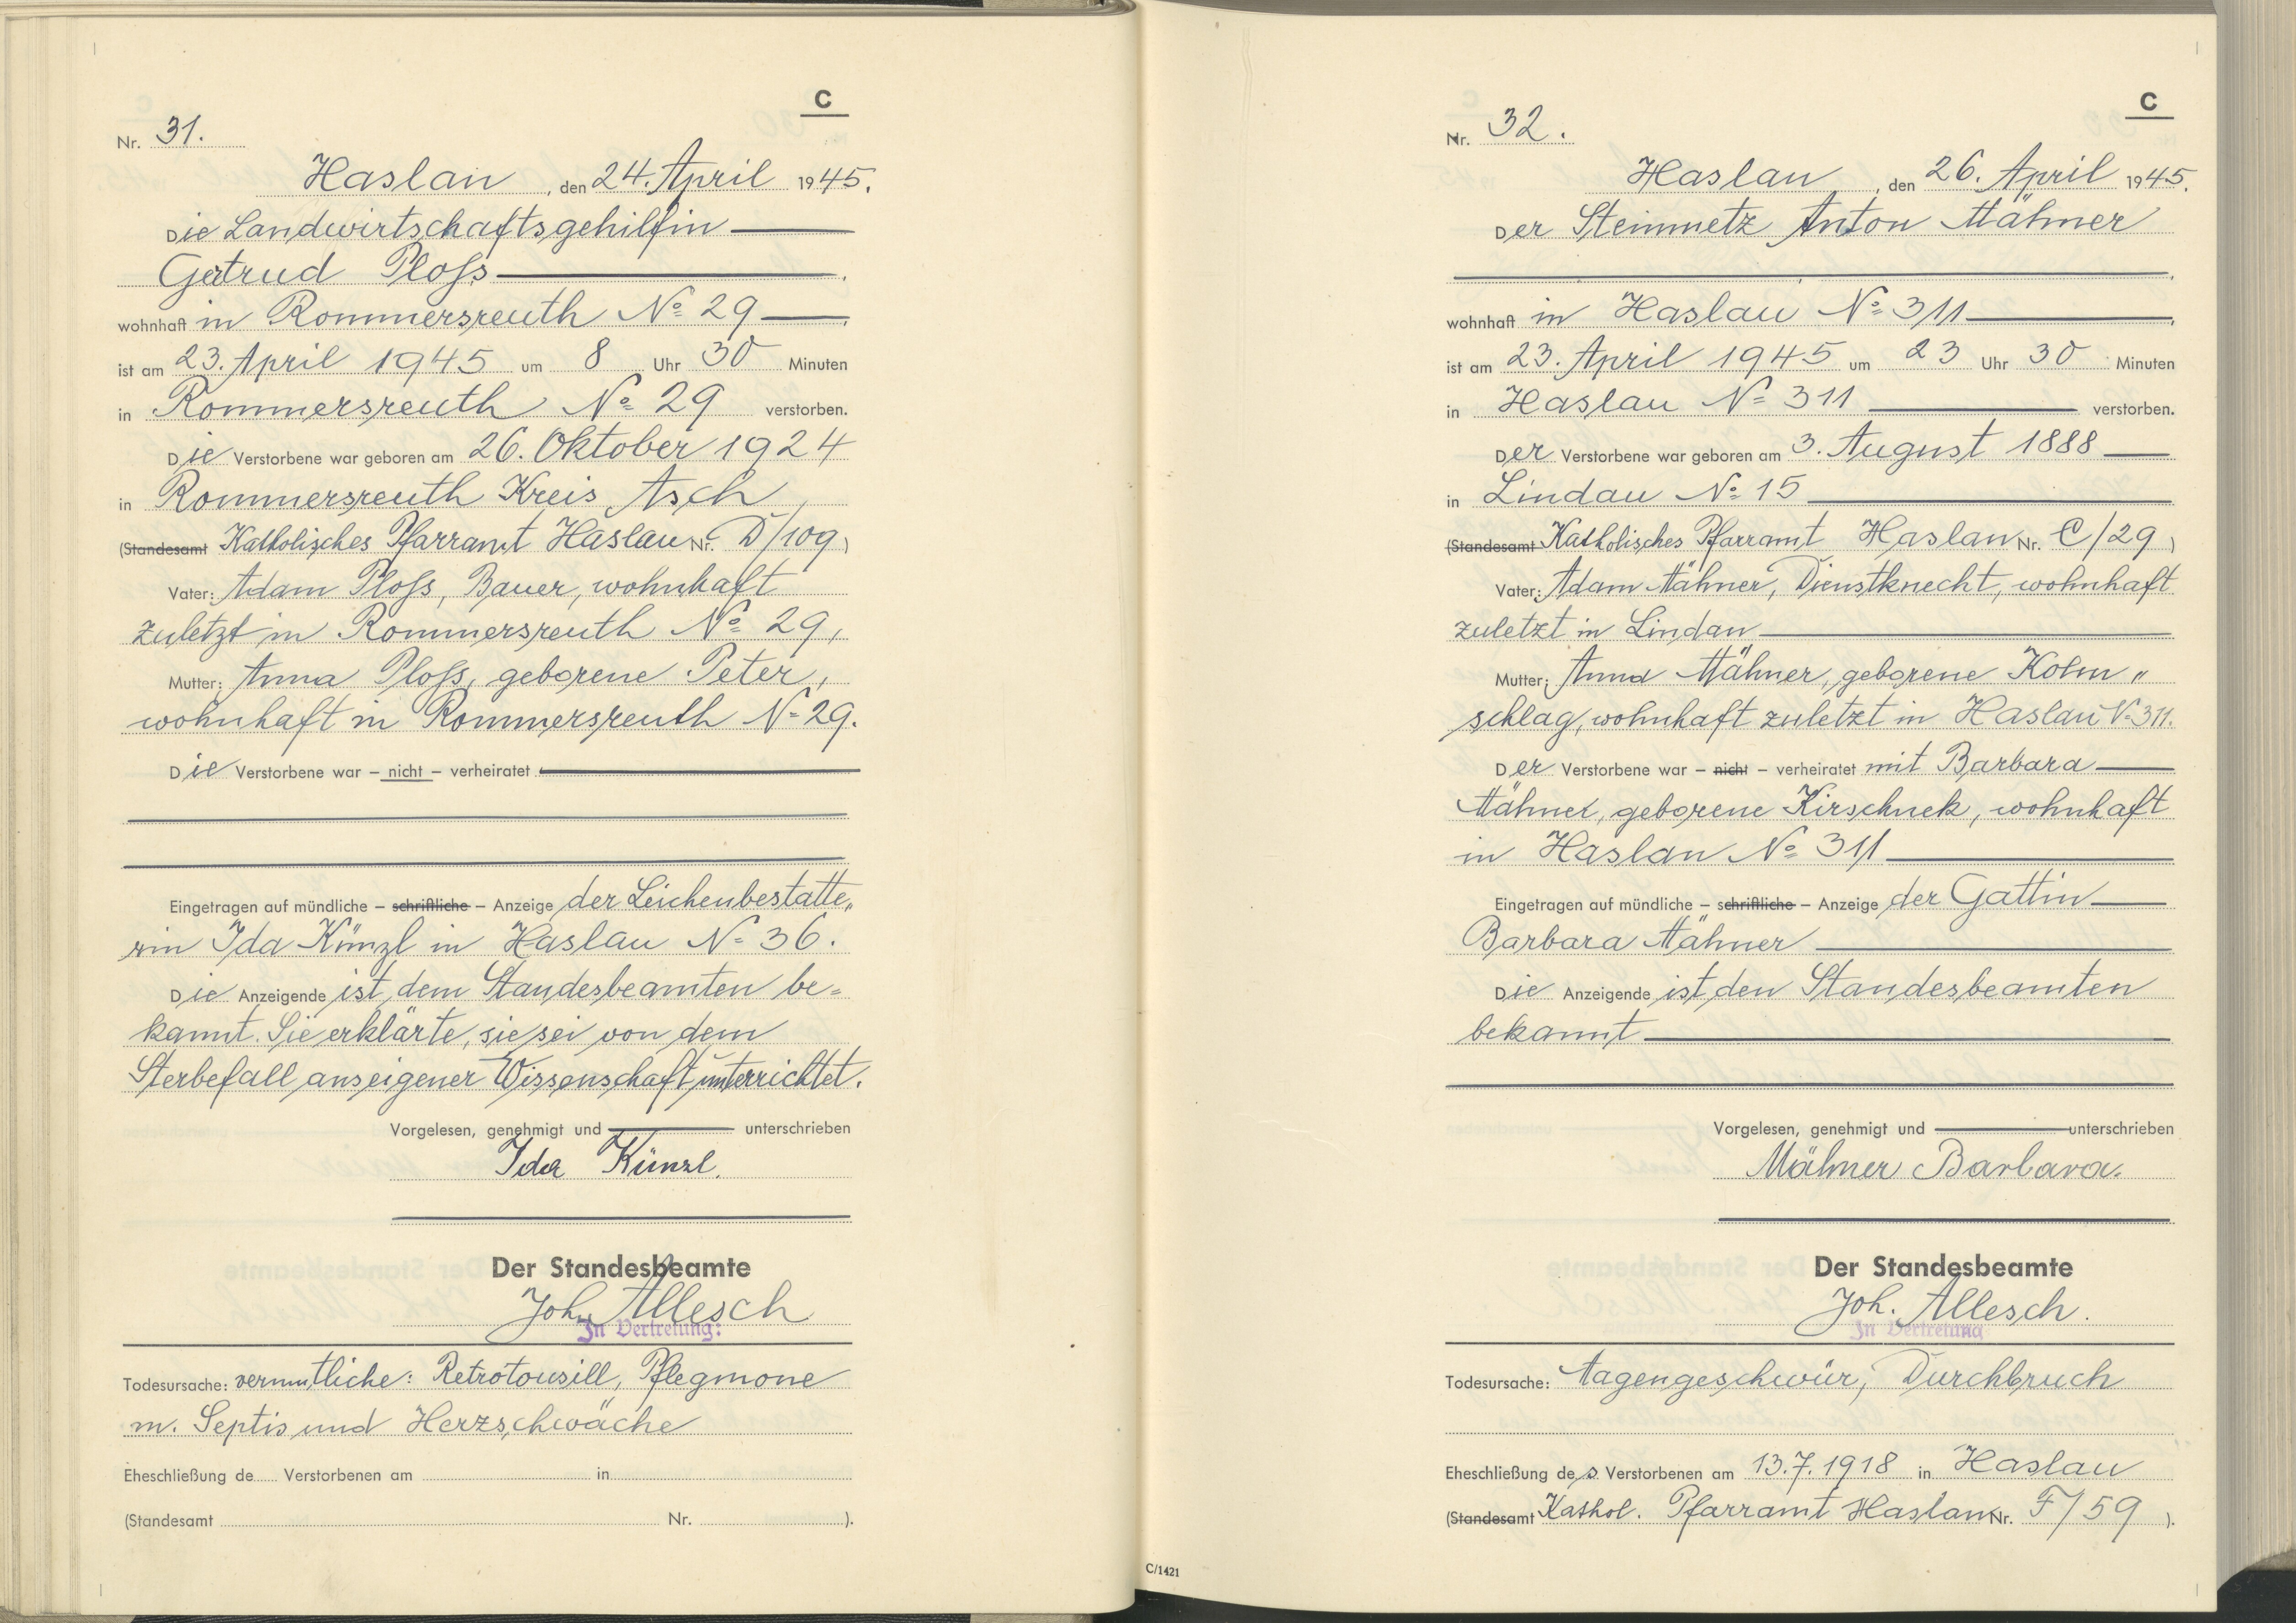 C
Nr. 31.
Haslau, den 24. April 1945.
Die Landwirtschaftsgehilfin
Gertrud Ploss
wohnhaft in Rommersreuth No 29
ist am 23. April 1945 um 8 Uhr 30 Minuten
in Rommersreuth No 29 verstorben.
Die Verstorbene war geboren am 26. Oktober 1924
in Rommersreuth Kreis Asch,
(Standesamt Katholisches Pfarramt Haslau Nr. D/109)
Vater: Adam Ploss, Bauer, wohnhaft
zuletzt in Rommersreuth No 29,
Mutter: Anna Ploss, geborene Peter,
wohnhaft in Rommersreuth No 29.
Die Verstorbene war – nicht – verheiratet
Eingetragen auf mündliche – schriftliche – Anzeige der Leichenbestatte„
rin Ida Künzl in Haslau No 36.
Die Anzeigende ist dem Standesbeamten be=
kannt. Sie erklärte, sie sei von dem
Sterbefall aus eigener Wissenschaft unterrichtet.
Vorgelesen, genehmigt und unterschrieben
Ida Künzl.
Der Standesbeamte
Joh. Allesch
In Vertretung:
Todesursache: vermutliche: Retrotonsill, Pflegmone
m. Septis und Herzschwäche
Eheschließung de Verstorbenen am in
(Standesamt Nr. ).
C
Nr. 32.
Haslau, den 26. April 1945.
Der Steinmetz Anton Mähner
wohnhaft in Haslau No 311
ist am 23. April 1945 um 23 Uhr 30 Minuten
in Haslau No 311 verstorben.
Der Verstorbene war geboren am 3. August 1888
in Lindau No 15
(Standesamt Katholisches Pfarramt Haslau Nr. C/29)
Vater: Adam Mähner, Dienstknecht, wohnhaft
zuletzt in Lindau
Mutter: Anna Mähner, geborene Kolm„
schlag, wohnhaft zuletzt in Haslau No 311.
Der Verstorbene war – nicht – verheiratet mit Barbara
Mähner, geborene Kirschnek, wohnhaft
in Haslau No 311
Eingetragen auf mündliche – schriftliche – Anzeige der Gattin
Barbara Mähner
Die Anzeigende ist den Standesbeamten
bekannt
Vorgelesen, genehmigt und unterschrieben
Mähner Barbara.
Der Standesbeamte
Joh. Allesch.
In Vertretung
Todesursache: Magengeschwür, Durchbruch
Eheschließung des Verstorbenen am 13.7.1918 in Haslau
(Standesamt Kathol. Pfarramt Haslau Nr. F/59 ).
C/1421